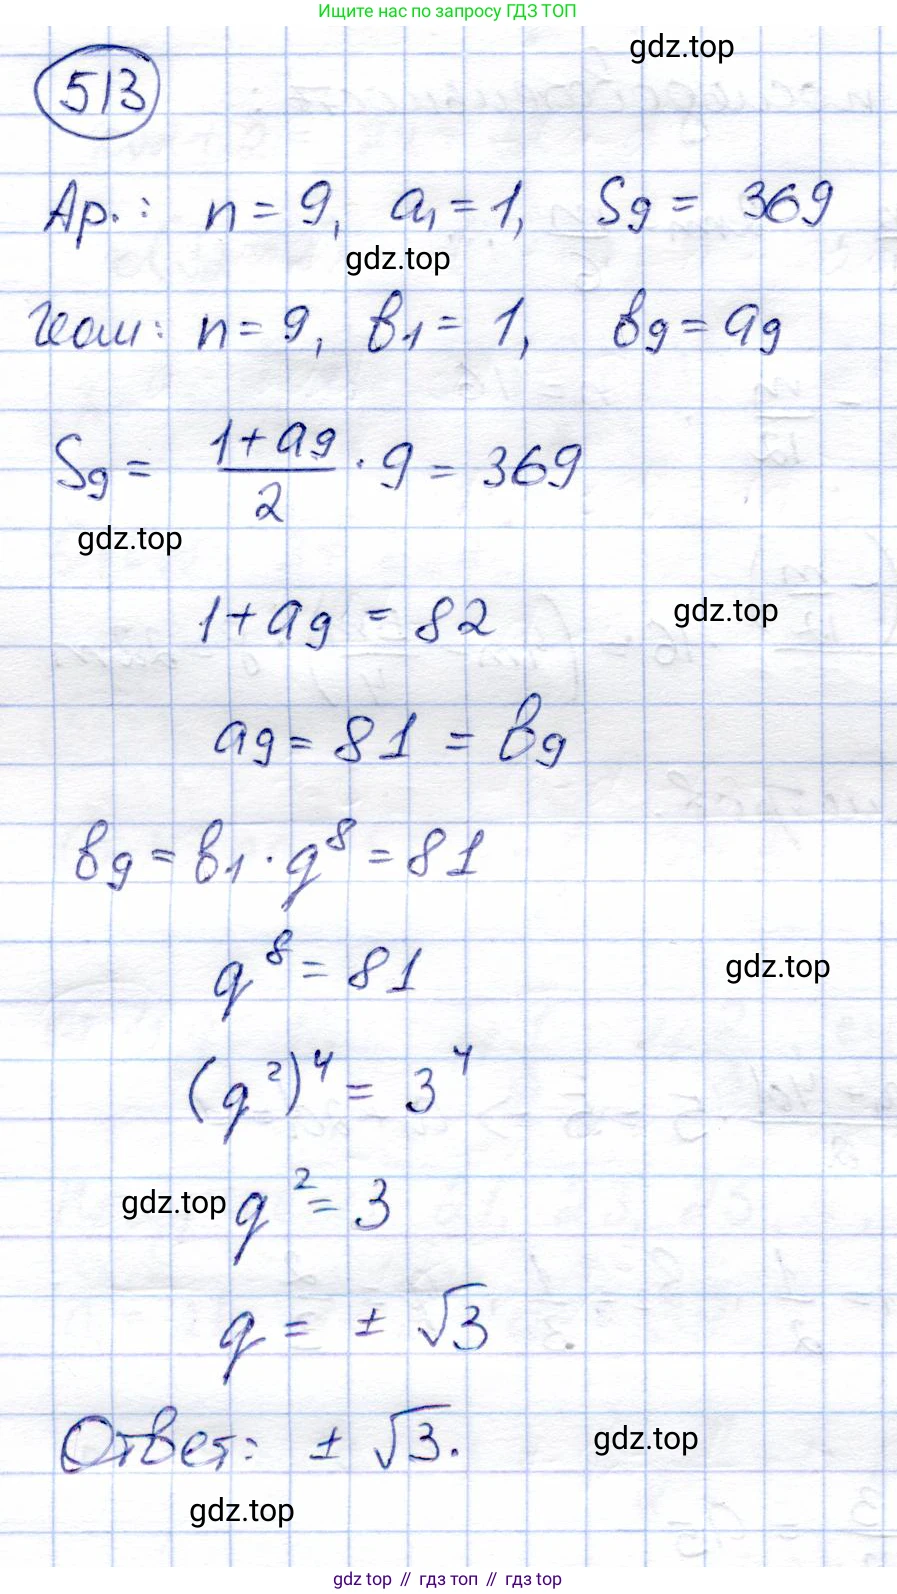 Ищите нас по запросу ГДЗ ТОП
gdz.top
513
Ар.: n = 9, a₁ = 1, S₉ = 369
gdz.top
Геом: n = 9, b₁ = 1, b₉ = a₉
S₉ = (1 + a₉)/2 · 9 = 369
gdz.top
1 + a₉ = 82
gdz.top
a₉ = 81 = b₉
b₉ = b₁ · q⁸ = 81
q⁸ = 81
gdz.top
(q²)⁴ = 3⁴
q² = 3
gdz.top
q = ± √3
Ответ: ± √3.
gdz.top
gdz.top
gdz top // гдз топ // gdz top